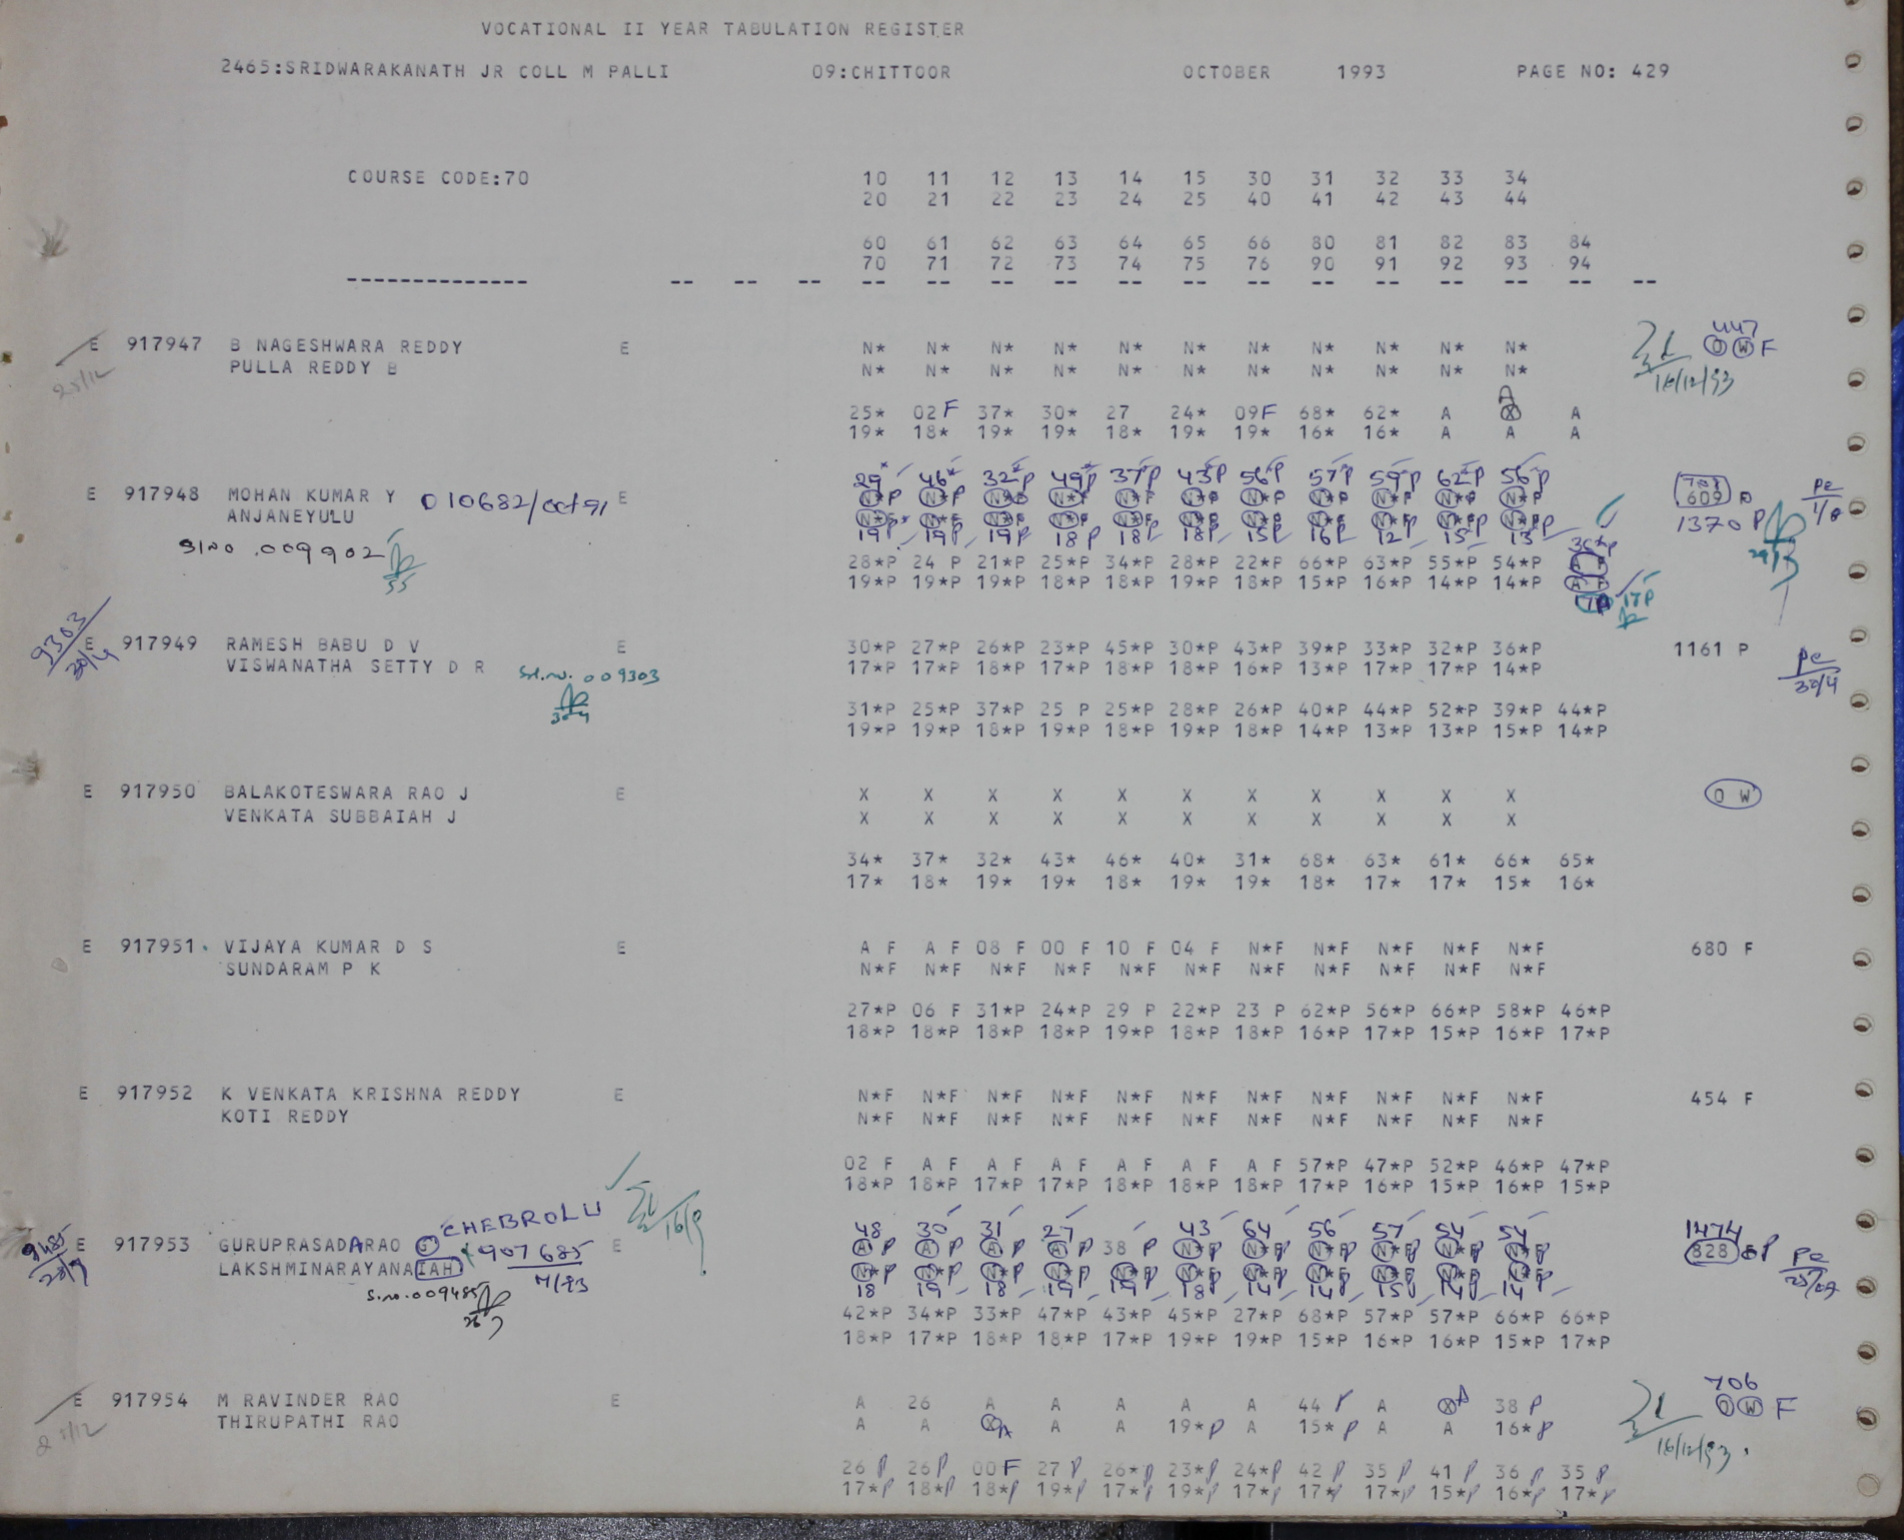 VOCATIONAL II YEAR TABULATION REGISTER
2465:SRIDWARAKANATH JR COLL M PALLI 09:CHITTOOR OCTOBER 1993 PAGE NO: 429
COURSE CODE:70 10 11 12 13 14 15 30 31 32 33 34
20 21 22 23 24 25 40 41 42 43 44
60 61 62 63 64 65 66 80 81 82 83 84
70 71 72 73 74 75 76 90 91 92 93 94
-------------- -- -- -- -- -- -- -- -- -- -- -- -- -- -- -- --
447
E 917947 B NAGESHWARA REDDY E N* N* N* N* N* N* N* N* N* N* N* O W F
25/12 PULLA REDDY B N* N* N* N* N* N* N* N* N* N* N* 16/12/93
A
25* 02 F 37* 30* 27 24* 09F 68* 62* A X A
19* 18* 19* 19* 18* 19* 19* 16* 16* A A A
29* 46* 32*P 49*P 37*P 43*P 56*P 57*P 59*P 62*P 56*P
E 917948 MOHAN KUMAR Y 010682/oct 91 E N*P N*P N* N* N*F N*P N*P N*P N*P N*P N*P 609 P
ANJANEYULU N*F N*F N*F N*F N*F N*P N*P N*F N*P N*P N*P 1370 P
Sl no .009902 19P 19P 19P 18P 18P 18P 15P 16P 12P 15P 13P
28*P 24 P 21*P 25*P 34*P 28*P 22*P 66*P 63*P 55*P 54*P
19*P 19*P 19*P 18*P 18*P 19*P 18*P 15*P 16*P 14*P 14*P
17P 17P
9303
30/4
E 917949 RAMESH BABU D V E 30*P 27*P 26*P 23*P 45*P 30*P 43*P 39*P 33*P 32*P 36*P 1161 P
VISWANATHA SETTY D R Sl.no. 009303 17*P 17*P 18*P 17*P 18*P 18*P 16*P 13*P 17*P 17*P 14*P Pc
30/4
31*P 25*P 37*P 25 P 25*P 28*P 26*P 40*P 44*P 52*P 39*P 44*P
19*P 19*P 18*P 19*P 18*P 19*P 18*P 14*P 13*P 13*P 15*P 14*P
E 917950 BALAKOTESWARA RAO J E X X X X X X X X X X X O W
VENKATA SUBBAIAH J X X X X X X X X X X X
34* 37* 32* 43* 46* 40* 31* 68* 63* 61* 66* 65*
17* 18* 19* 19* 18* 19* 19* 18* 17* 17* 15* 16*
E 917951 VIJAYA KUMAR D S E A F A F 08 F 00 F 10 F 04 F N*F N*F N*F N*F N*F 680 F
SUNDARAM P K N*F N*F N*F N*F N*F N*F N*F N*F N*F N*F N*F
27*P 06 F 31*P 24*P 29 P 22*P 23 P 62*P 56*P 66*P 58*P 46*P
18*P 18*P 18*P 18*P 19*P 18*P 18*P 16*P 17*P 15*P 16*P 17*P
E 917952 K VENKATA KRISHNA REDDY E N*F N*F N*F N*F N*F N*F N*F N*F N*F N*F N*F 454 F
KOTI REDDY N*F N*F N*F N*F N*F N*F N*F N*F N*F N*F N*F
02 F A F A F A F A F A F A F 57*P 47*P 52*P 46*P 47*P
18*P 18*P 17*P 17*P 18*P 18*P 18*P 17*P 16*P 15*P 16*P 15*P
CHEBROLU 16/9
48 30 31 27 43 64 56 57 54 54 1474
E 917953 GURUPRASADARAO G 907685 E A P A P A P A P 38 P N*P N*P N*P N*P N*P N*P 828 P
LAKSHMINARAYANAIAH 7/93 N*P N*P N*P N*P N*P N*P N*P N*P N*P N*P N*P
S.no.009485 18 19 18 19 19 18 14 14 15 14 14
42*P 34*P 33*P 47*P 43*P 45*P 27*P 68*P 57*P 57*P 66*P 66*P
18*P 17*P 18*P 18*P 17*P 19*P 19*P 15*P 16*P 16*P 15*P 17*P
706
E 917954 M RAVINDER RAO E A 26 A A A A A 44 P A X A 38 P O W F
THIRUPATHI RAO A A X A A A 19*P A 15*P A A 16*P
16/12/93.
26 P 26P 00F 27 P 26*P 23*P 24*P 42 P 35 P 41 P 36 P 35 P
17*P 18*P 18*P 19*P 17*P 19*P 17*P 17*P 17*P 15*P 16*P 17*P